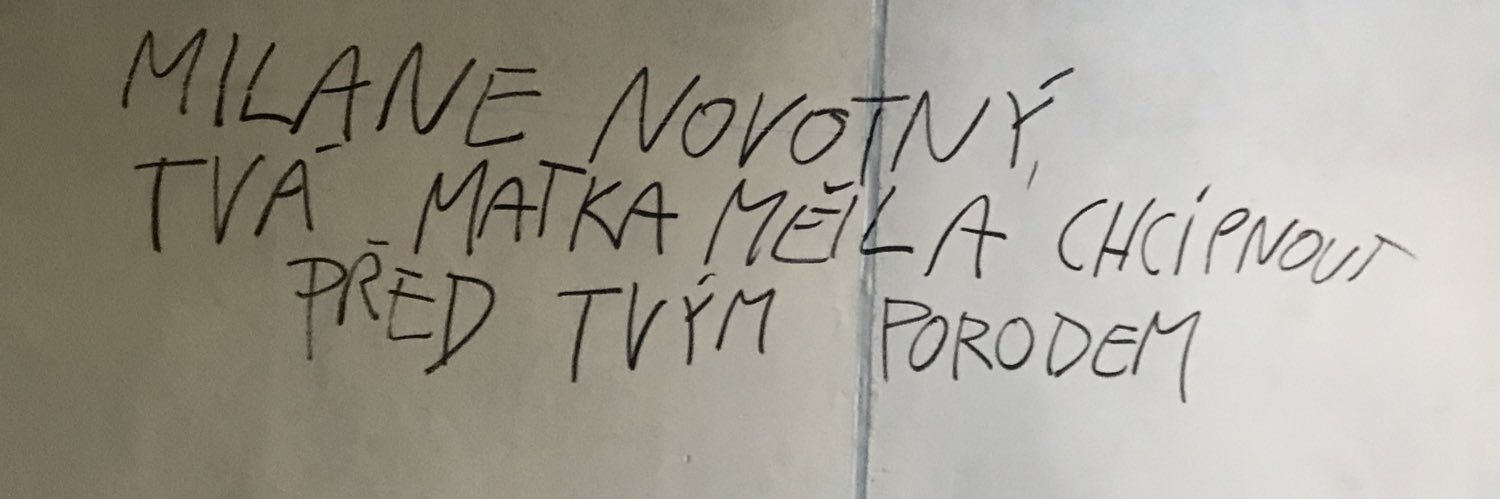 MILANE NOVOTNÝ,
TVÁ MATKA MĚLA CHCÍPNOUT
PŘED TVÝM PORODEM